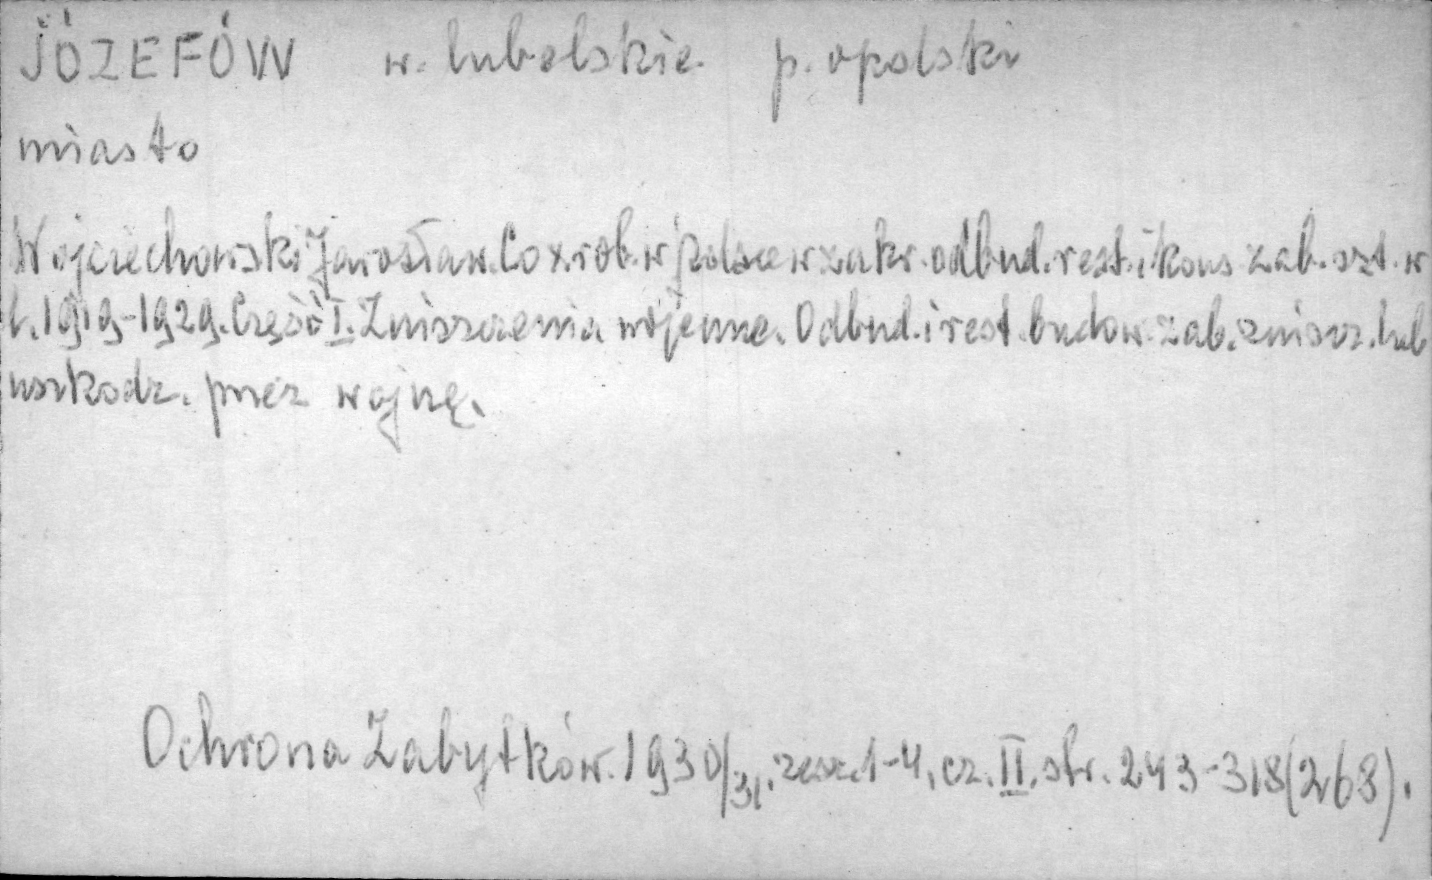 JÓZEFÓW w. lubelskie p. opolski
miasto
Wojciechowski Jarosław. Co zrob. w Polsce w zakr. odbud. rest. i kons. zab. szt. w
l. 1919-1929. Część I. Zniszczenia wojenne. Odbud. i rest. budow. zab. zniszcz. lub
uszkodz. przez wojnę.
Ochrona Zabytków. 1930/31. zesz. 1-4, cz. II. str. 243-318 (268).